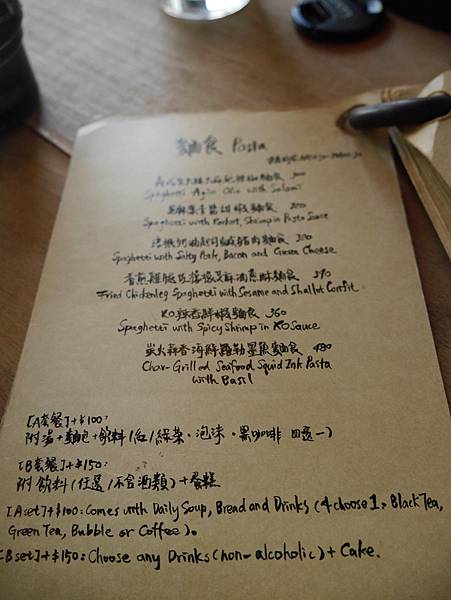 麵食 Pasta
Spaghetti Aglio Olio with Salami
Spaghetti with Rocket, Shrimp in Pesto Sauce
Spaghetti with Salty Pork, Bacon and Cream Cheese
香煎雞腿 麻油 麵食
Fried Chickenleg Spaghetti with Sesame and Shallot Confit
XO辣香鮮蝦麵食 360
Spaghetti with Spicy Shrimp in XO Sauce
炭火蒜香海鮮羅勒墨魚麵食 480
Char-Grilled Seafood Squid Ink Pasta
with Basil
[A套餐]+$100:
附湯+麵包+飲料(紅/綠茶、泡沫、黑咖啡 四選一)
[B套餐]+$150:
附飲料(任選/不含酒類)+蛋糕
[A set]+$100: Comes with Daily Soup, Bread and Drinks (4 choose 1, Black Tea,
Green Tea, Bubble or Coffee)。
[B set]+$150: Choose any Drinks (non-alcoholic) + Cake.